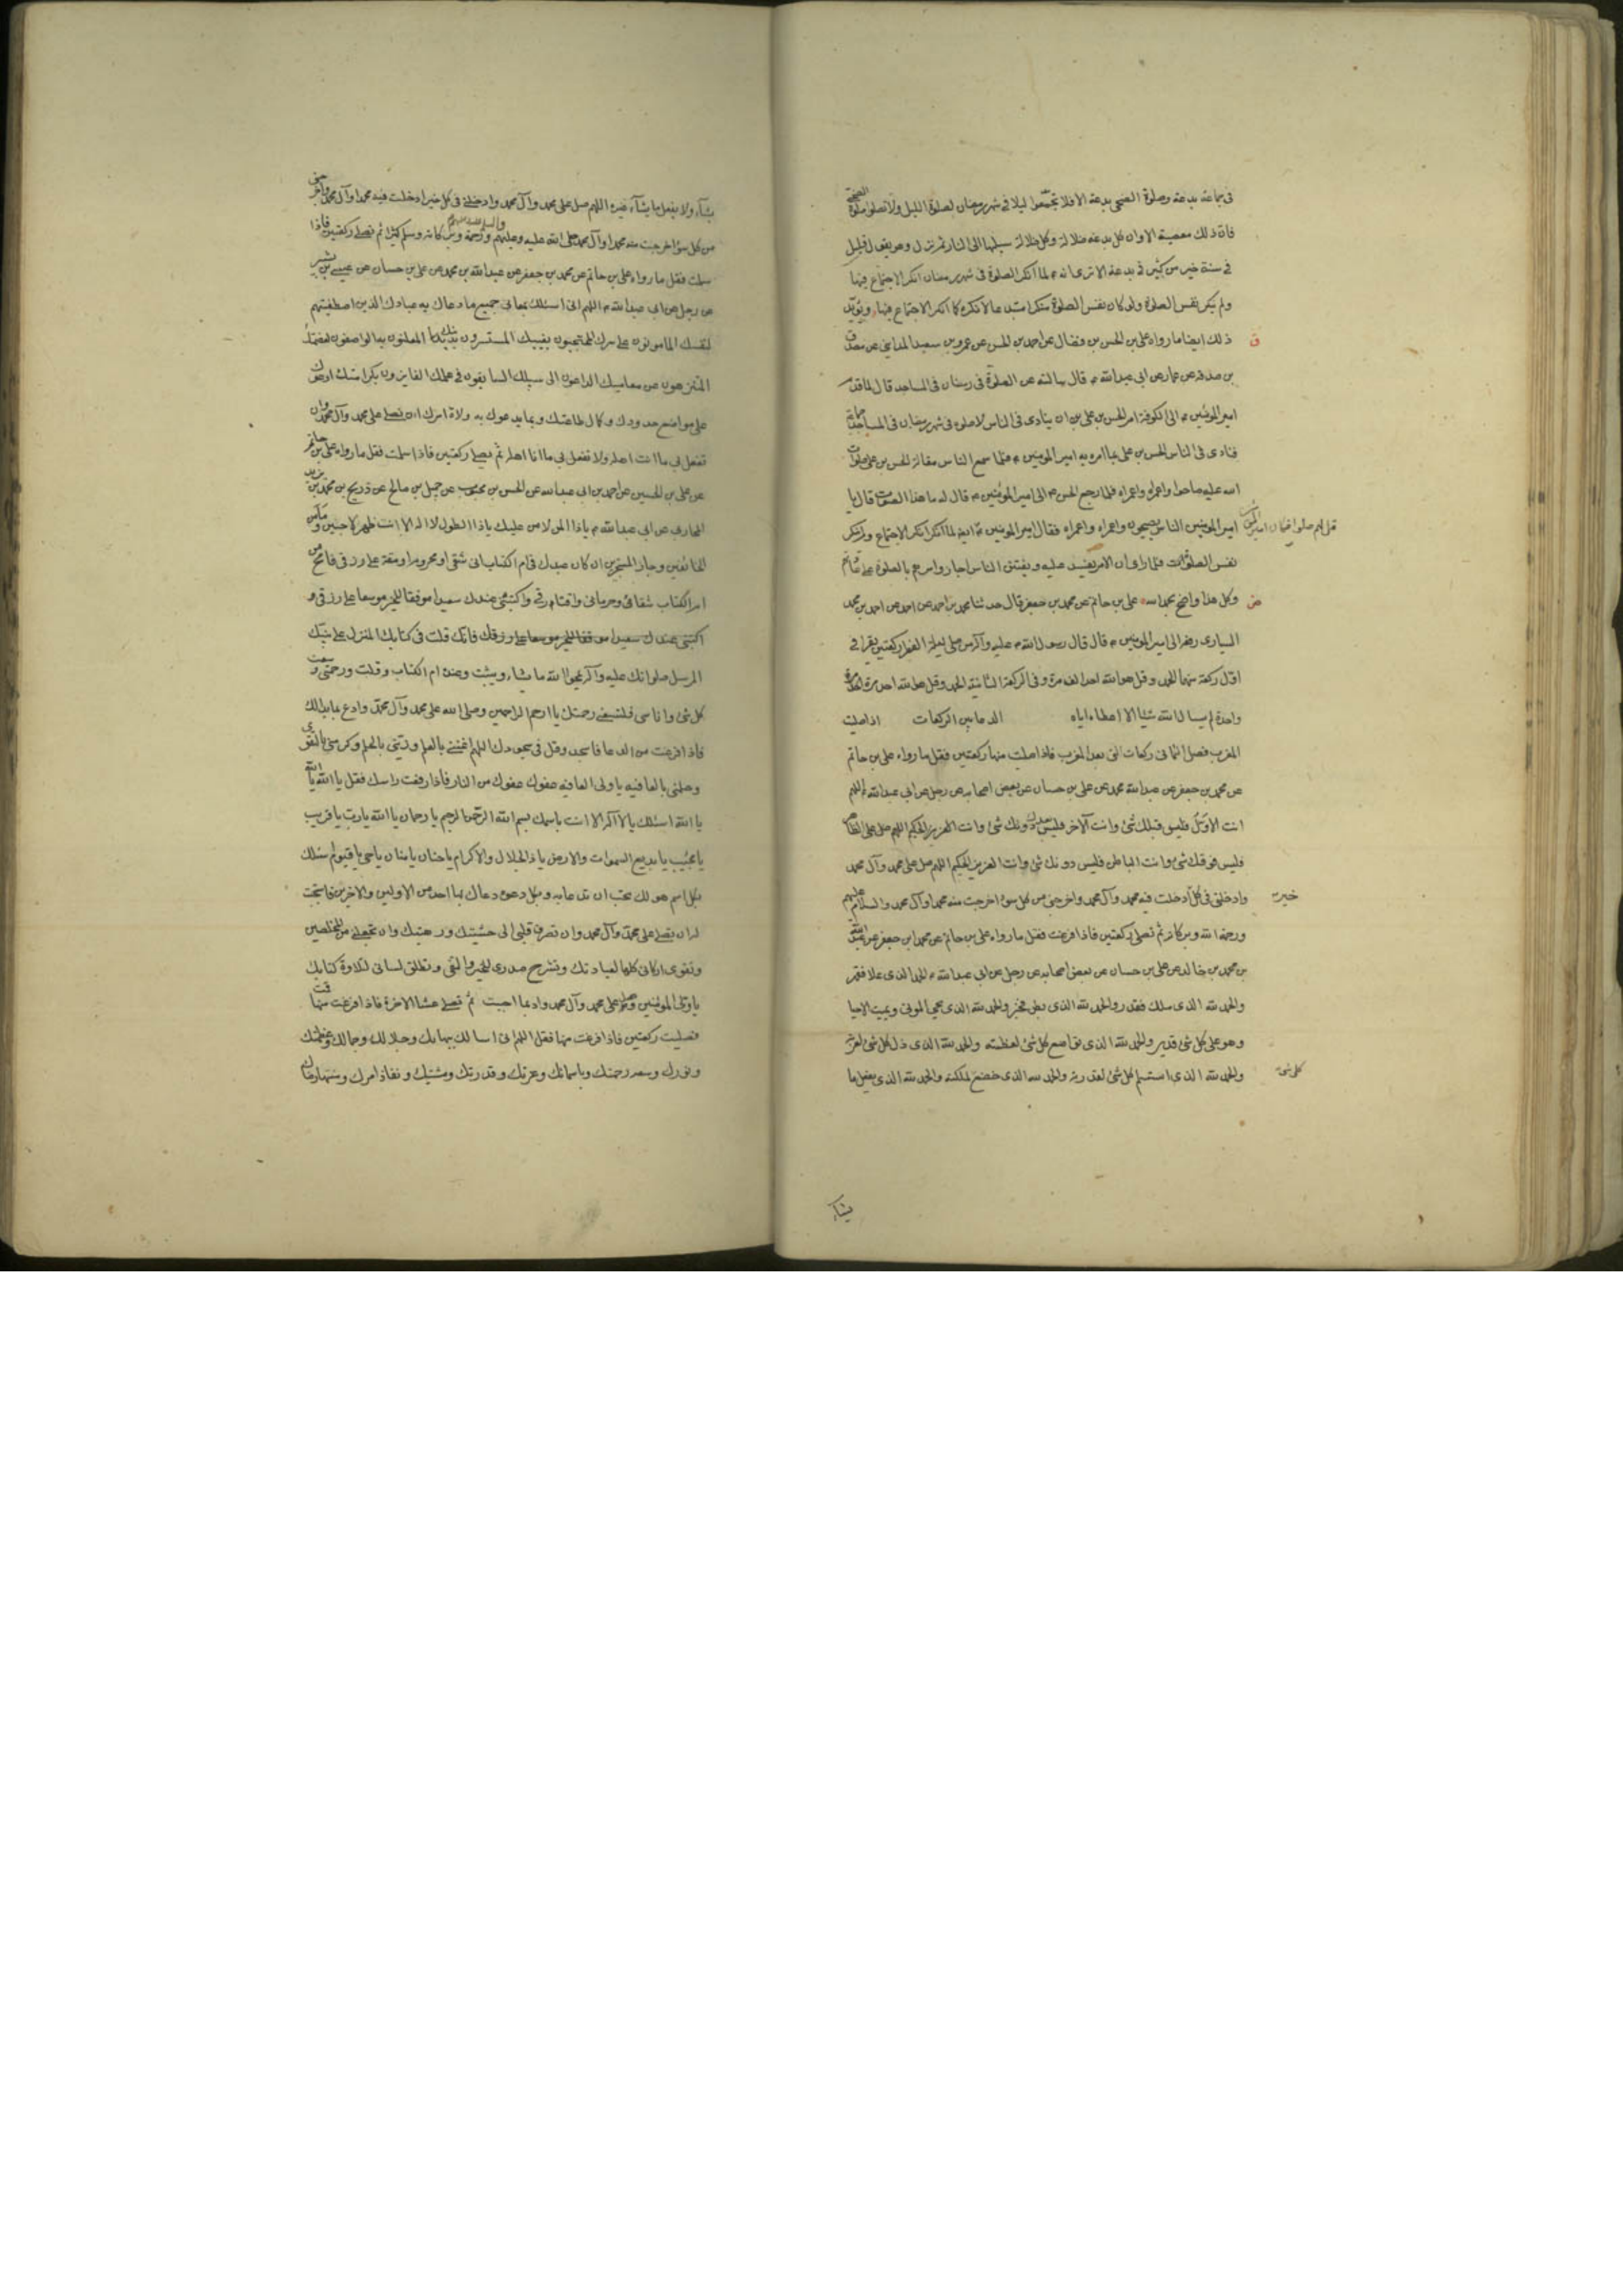 فى جماعة بدعة وصلوة الضحى بدعة الا فلا تجتمعوا ليلا فى شهر رمضان لصلوة الليل ولا تصلوا صلوة الضحى
فان ذلك معصية الا وان كل بدعة ضلالة وكل ضلالة سبيلها الى النار ثم نزل وهو يقول قليل
فى سنة خير من كثير فى بدعة الا ترى انه ع لما انكر الصلوة فى شهر رمضان انكر الاجتماع فيها
ولم ينكر نفس الصلوة ولو كان نفس الصلوة منكرا مبتدعا لانكره كما انكر الاجتماع فيها ويؤيد
ق ذلك ايضا ما رواه على بن الحسن بن فضال عن احمد بن الحسن عن عمرو بن سعيد المداينى عن مصدق
بن صدقة عن عمار عن ابى عبدالله ع قال سالته عن الصلوة فى رمضان فى المساجد قال لما قدم
امير المؤمنين ع الى الكوفة امر الحسن بن على ان ينادى فى الناس لا صلوة فى شهر رمضان فى المساجد جماعة
فنادى فى الناس الحسن بن على بما امره به امير المومنين ع فلما سمع الناس مقالة الحسن بن على صلوات
الله عليه صاحوا واعمراه واعمراه فلما رجع الحسن ع الى امير المؤمنين ع قال له ما هذا الصوت قال يا
امير المومنين الناس يصيحون واعمراه واعمراه فقال امير المومنين ع قل لهم صلوا فكان امير المؤمنين ايضا لما انكر انكر الاجتماع ولم ينكر
نفس الصلوات فلما راى ان الامر يفسد عليه ويفتتن الناس اجاز وامرهم بالصلوة على عادتهم
وكل هذا واضح بحمد الله على بن حاتم عن محمد بن جعفر قال حدثنا محمد بن احمد عن احمد بن محمد
السيارى رفعه الى امير المومنين ع قال قال رسول الله ص عليه وآله من صلى ليلة الفطر ركعتين يقرا فى
اول ركعة منها الحمد وقل هو الله احد الف مرة وفى الركعة الثانية الحمد وقل هو الله احد مرة
واحدة لم يسال الله شيئا الا اعطاه اياه الدعا بين الركعات اذا صليت
المغرب فصل الثمانى ركعات التى بعد المغرب فاذا صليت منها ركعتين فقل ما رواه على بن حاتم
عن محمد بن جعفر عن عبدالله محمد عن على بن حسان عن بعض اصحابه عن رجل عن ابى عبدالله ع اللهم
انت الاول فليس قبلك شئ وانت الآخر فليس بعدك شئ وانت الظاهر
فليس فوقك شئ وانت الباطن فليس دونك شئ وانت العزيز الحكيم اللهم صل على محمد وآل محمد
وادخلنى فى كل خير ادخلت فيه محمد وآل محمد واخرجنى من كل سوء اخرجت منه محمدا وآل محمد والسلام عليهم
ورحمة الله وبركاته ثم تصلى ركعتين فاذا فرغت فقل ما رواه على بن حاتم عن محمد بن جعفر عن عبدالله
بن محمد بن خالد عن على بن حسان عن بعض اصحابه عن رجل عن ابى عبدالله ع الحمد لله الذى علا فقهر
والحمد لله الذى ملك فقدر والحمد لله الذى بطن فخبر والحمد لله الذى يحيى الموتى ويميت الاحيا
وهو على كل شئ قدير والحمد لله الذى تواضع كل شئ لعظمته والحمد لله الذى ذل كل شئ لعزته
والحمد لله الذى استسلم كل شئ لقدرته والحمد لله الذى خضع كل شئ لملكته والحمد لله الذى يفعل ما
يشاء
يشاء ولا يفعل ما يشاء غيره اللهم صل على محمد وآل محمد وادخلنى فى كل خير ادخلت فيه محمدا وآل محمد واخرجنى
من كل سوء اخرجت منه محمدا وآل محمد صلى الله عليه وعليهم والسلام ورحمة وبركاته وسلم كثيرا ثم تصلى ركعتين فاذا
سلمت فقل ما رواه على بن حاتم عن محمد بن جعفر عن عبدالله بن محمد عن على بن حسان عن عيسى بن بشير
عن رجل عن ابى عبدالله ع اللهم انى اسئلك بمعانى جميع ما دعاك به عبادك الذين اصطفيتهم
لنفسك المامونون على سرك المحتجبون بغيبك المستسرون بدينك المعلنون به الواصفون لعظمتك
المتنزهون عن معاصيك الداعون الى سبيلك السابقون فى علمك الفايزون بكرامتك ادعوك
على مواضع حدودك وكمال طاعتك وبما يدعوك به ولاة امرك ان تصلى على محمد وآل محمد وان
تفعل بى ما انت اهله ولا تفعل بى ما انا اهله ثم تصلى ركعتين فاذا سلمت فقل ما رواه على بن حاتم
عن على بن الحسين عن احمد بن ابى عبدالله عن الحسن بن محبوب عن جميل بن صالح عن ذريح بن محمد بن يزيد
المحاربى عن ابى عبدالله ع ياذا المن لا من عليك ياذا الطول لا اله الا انت ظهر اللاجئين ومأمن
الخائفين وجار المستجيرين ان كان عندك فى ام الكتاب انى شقى او محروم او مقتر على رزقى فامح من
ام الكتاب شقائى وحرمانى واقتار رزقى واكتبنى عندك سعيدا موفقا للخير موسعا على رزقى و
اكتبنى عندك سعيدا موفقا للخير موسعا على رزقك فانك قلت فى كتابك المنزل على نبيك
المرسل صلواتك عليه وآله يمحوا الله ما يشاء ويثبت وعنده ام الكتاب وقلت ورحمتى وسعت
كل شئ وانا شئ فلتسعنى رحمتك يا ارحم الراحمين وصلى الله على محمد وآل محمد وادع بما بدا لك
فاذا فرغت من الدعا فاسجد وقل فى سجودك اللهم اغننى بالعلم وزينى بالحلم وكرمنى بالتقوى
وجملنى بالعافيه يا ولى العافيه عفوك عفوك من النار فاذا رفعت راسك فقل يا الله يا الله
يا الله اسئلك يا لا اله الا انت باسمك بسم الله الرحمن الرحيم يا رحمان يا الله يا رب يا قريب
يا مجيب يا بديع السموات والارض يا ذا الجلال والاكرام يا حنان يا منان يا حى يا قيوم اسئلك
بكل اسم هو لك تحب ان تدعا به وبكل دعوة دعاك بها احد من الاولين والاخرين فاستجبت
له ان تصلى على محمد وآل محمد وان تصرف قلبى الى خشيتك ورهبتك وان تجعلنى من المخلصين
وتقوى اركانى كلها لعبادتك وتشرح صدرى للخير والتقى وتطلق لسانى لتلاوة كتابك
يا ولى المؤمنين وصل على محمد وآل محمد وادع بما احببت ثم تصلى عشا الاخرة فاذا فرغت منها قمت
فصليت ركعتين فاذا فرغت منها فقل اللهم انى اسالك ببهائك وجلالك وجمالك وعظمتك
ونورك وسعة رحمتك وباسمائك وعزتك وقدرتك ومشيتك ونفاذ امرك ومنتهى رضاك